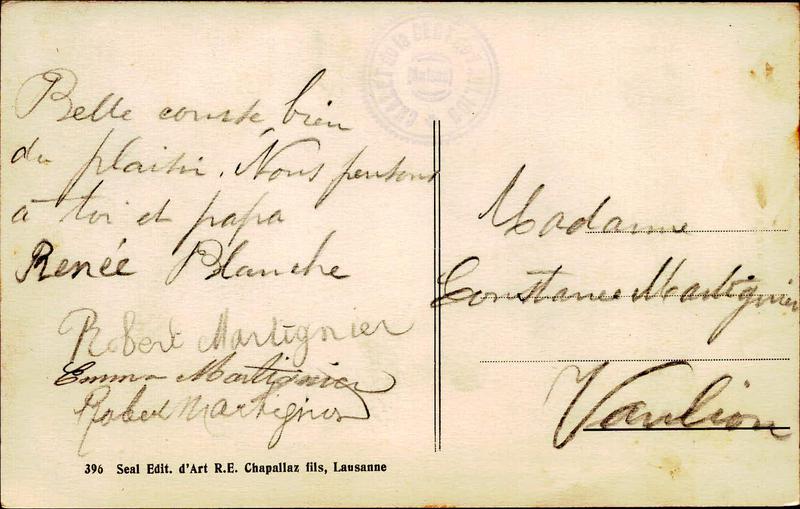 CHALET de la DENT
Belle course bien
du plaisir. Nous pensons
à toi et papa
Renée Blanche
Robert Martignier
Emma Martignier
Robert Martignier
Madame
Constance Martignier
Vaulion
396 Seal Edit. d'Art R.E. Chapallaz fils, Lausanne